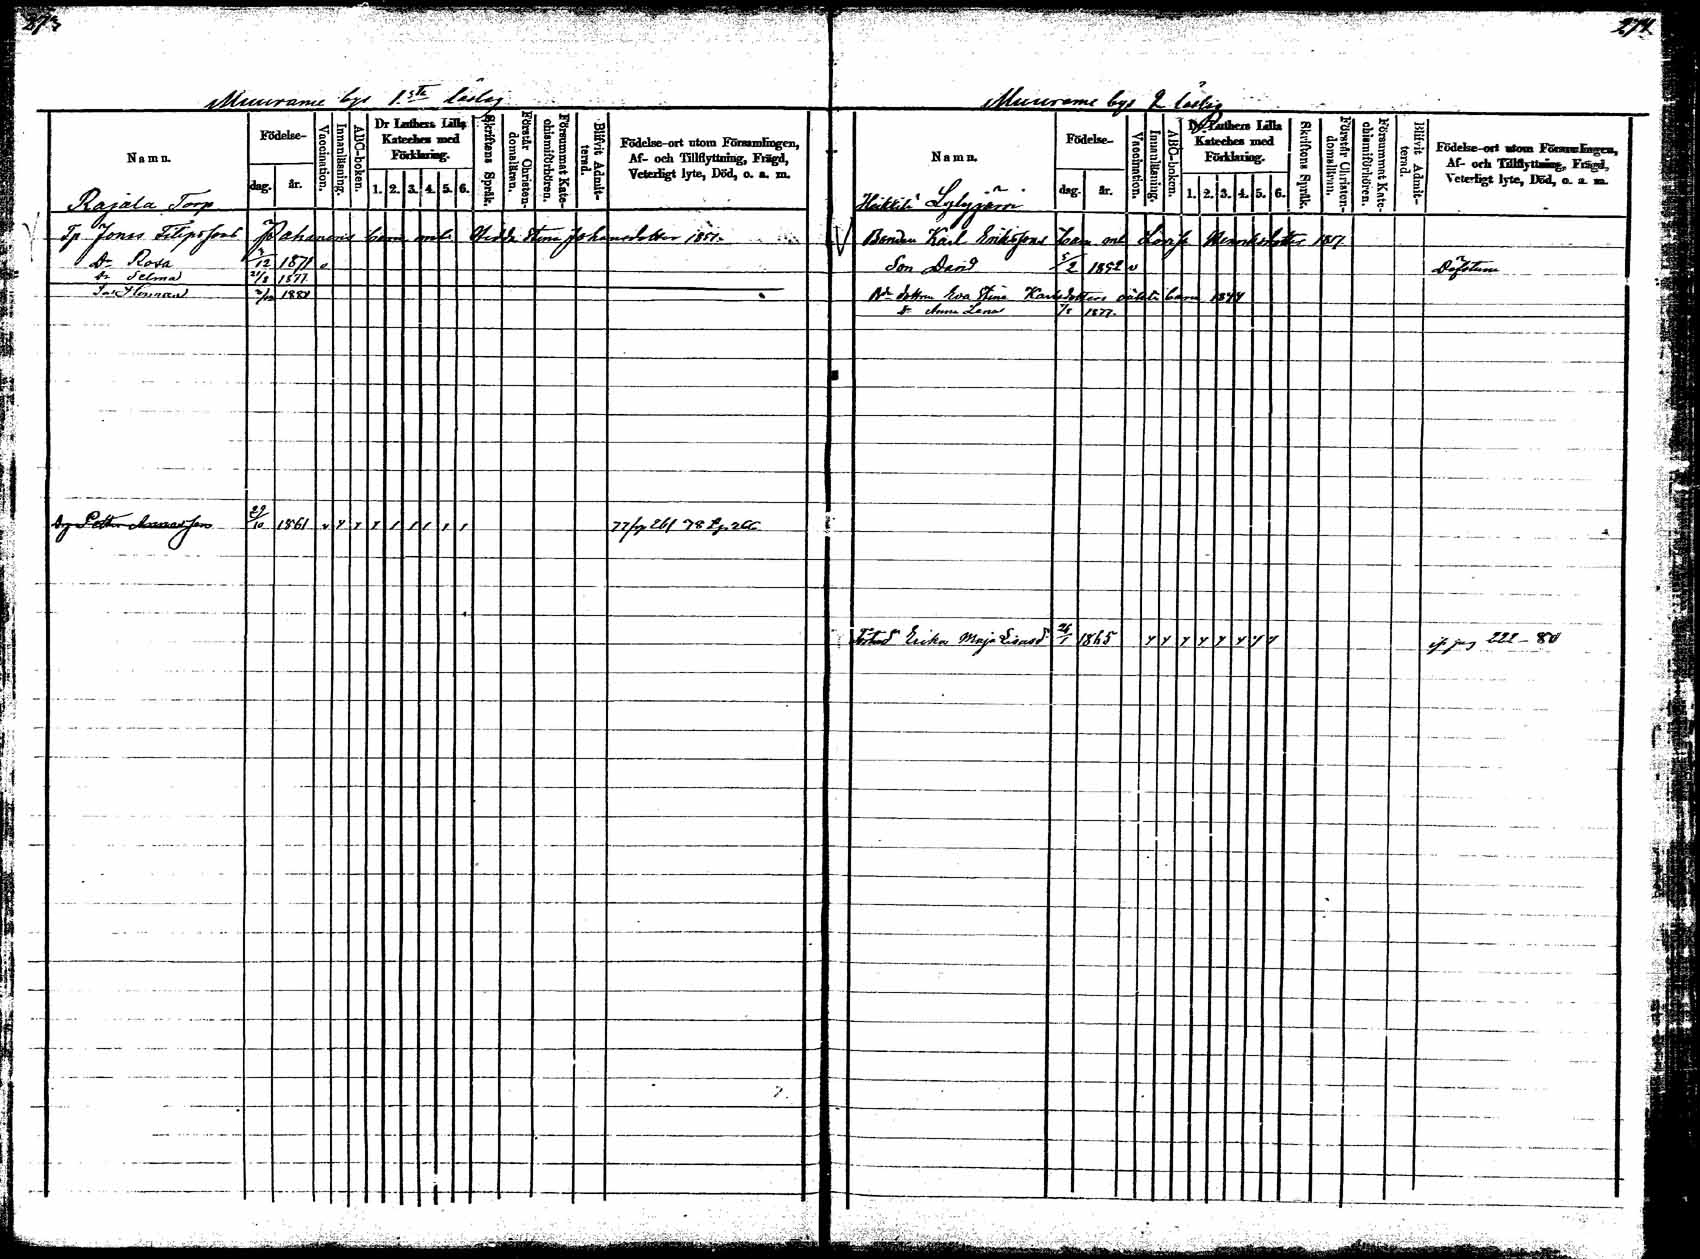 273
Muurame bys 1sta läslag
Namn.
Födelse-
dag.
år.
Vaccination.
Innanläsning.
ABC-boken.
Dr Luthers Lilla Kateches med Förklaring.
1. 2. 3. 4. 5. 6.
Skriftens Språk.
Förstår Christendomsläran.
Försummat Katechismiförhören.
Blifvit Admitterad.
Födelse-ort utom Församlingen,
Af- och Tillflyttning, Frägd,
Veterligt lyte, Död, o. a. m.
Rajala Torp
Tp. Jonas Filipssons barn med Hedda Stina Johansdotter 1851.
Dr Rosa 12 1871 v
Dr Selma 21/8 1877
Herman 1880
1861 v y y y 1 1 1 1 1 261 78
274
Muurame bys 2 läslag
Namn.
Födelse-
dag.
år.
Vaccination.
Innanläsning.
ABC-boken.
Dr Luthers Lilla Kateches med Förklaring.
1. 2. 3. 4. 5. 6.
Skriftens Språk.
Förstår Christendomsläran.
Försummat Katechismiförhören.
Blifvit Admitterad.
Födelse-ort utom Församlingen,
Af- och Tillflyttning, Frägd,
Veterligt lyte, Död, o. a. m.
Heikkilä
Bonden Karl Erikssons barn med Lovisa Henriksdotter 1857
Son David 5/2 1852 v Döfstum
Eva Stina Karlsdotters oäkta barn 1844
Dr Anna Lena 7/8 1877.
Erika Maja 26/1 1865 y y y y y y y y 222-80